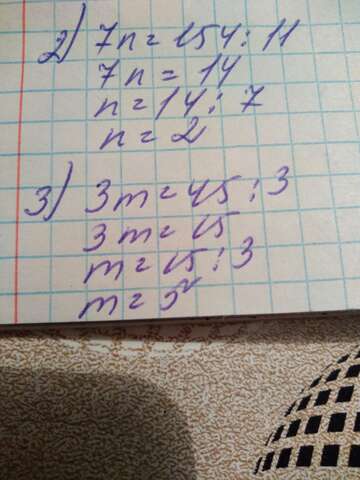 2) 7n = 154 : 11
7n = 14
n = 14 : 7
n = 2
3) 3m = 45 : 3
3m = 15
m = 15 : 3
m = 5